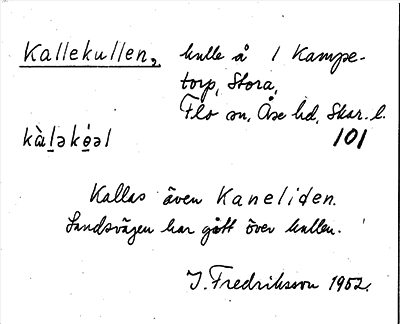 Kallekullen, kulle å 1 Kampe-
torp, Stora,
Flo sn, Åse hd, Skar. l.
kàl̲əké̤əl 101
Kallas även Kaneliden.
Landsvägen har gått över kullen.
J. Fredriksson 1952.